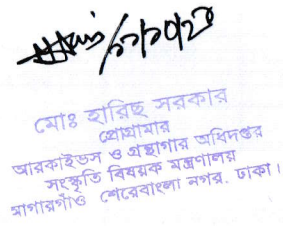 মোঃ হারিছ সরকার
প্রোগ্রামার
আরকাইভস ও গ্রন্থাগার অধিদপ্তর
সংস্কৃতি বিষয়ক মন্ত্রণালয়
আগারগাঁও শেরেবাংলা নগর, ঢাকা।